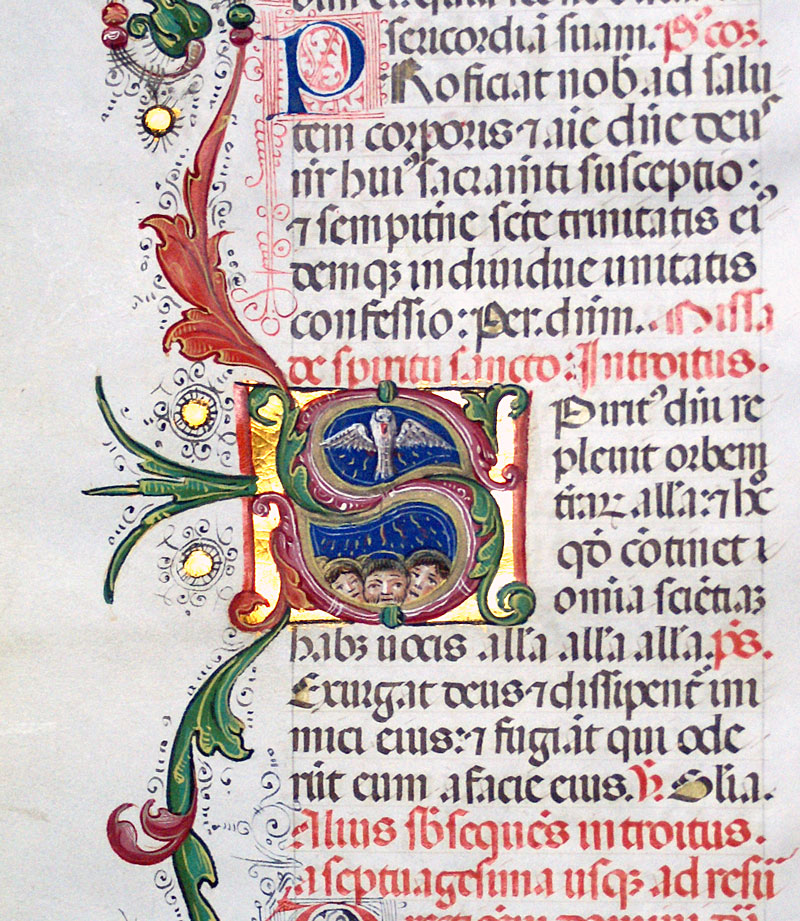 sericordiā suam. P' coꝫ.
Proficiat nob ad salu
tem corporis ⁊ aīe dn̄e deus
nr̄ huiꝰ sacram̄ti susceptio:
⁊ sempit̄ne sc̄te trinitatis eiꝰ
demqꝫ indiuidue unitatis
confessio: Per. dnm̄. Missa
de spiritu sancto: Introitus.
Spiritꝰ dn̄i re
pleuit orbem
t̄raꝝ all'a: ⁊ hͦc
qđ cōtinet
omia sciētiaꝫ
habꝫ uocis all'a all'a all'a. p̄s.
Exurgat deus ⁊ dissipent̄ ini
mici eius: ⁊ fugiāt qui ode
rūt eum a facie eius. V̄. Glia.
Alius sb̄sequēs introitus.
a septuagesima usqꝫ ad resu